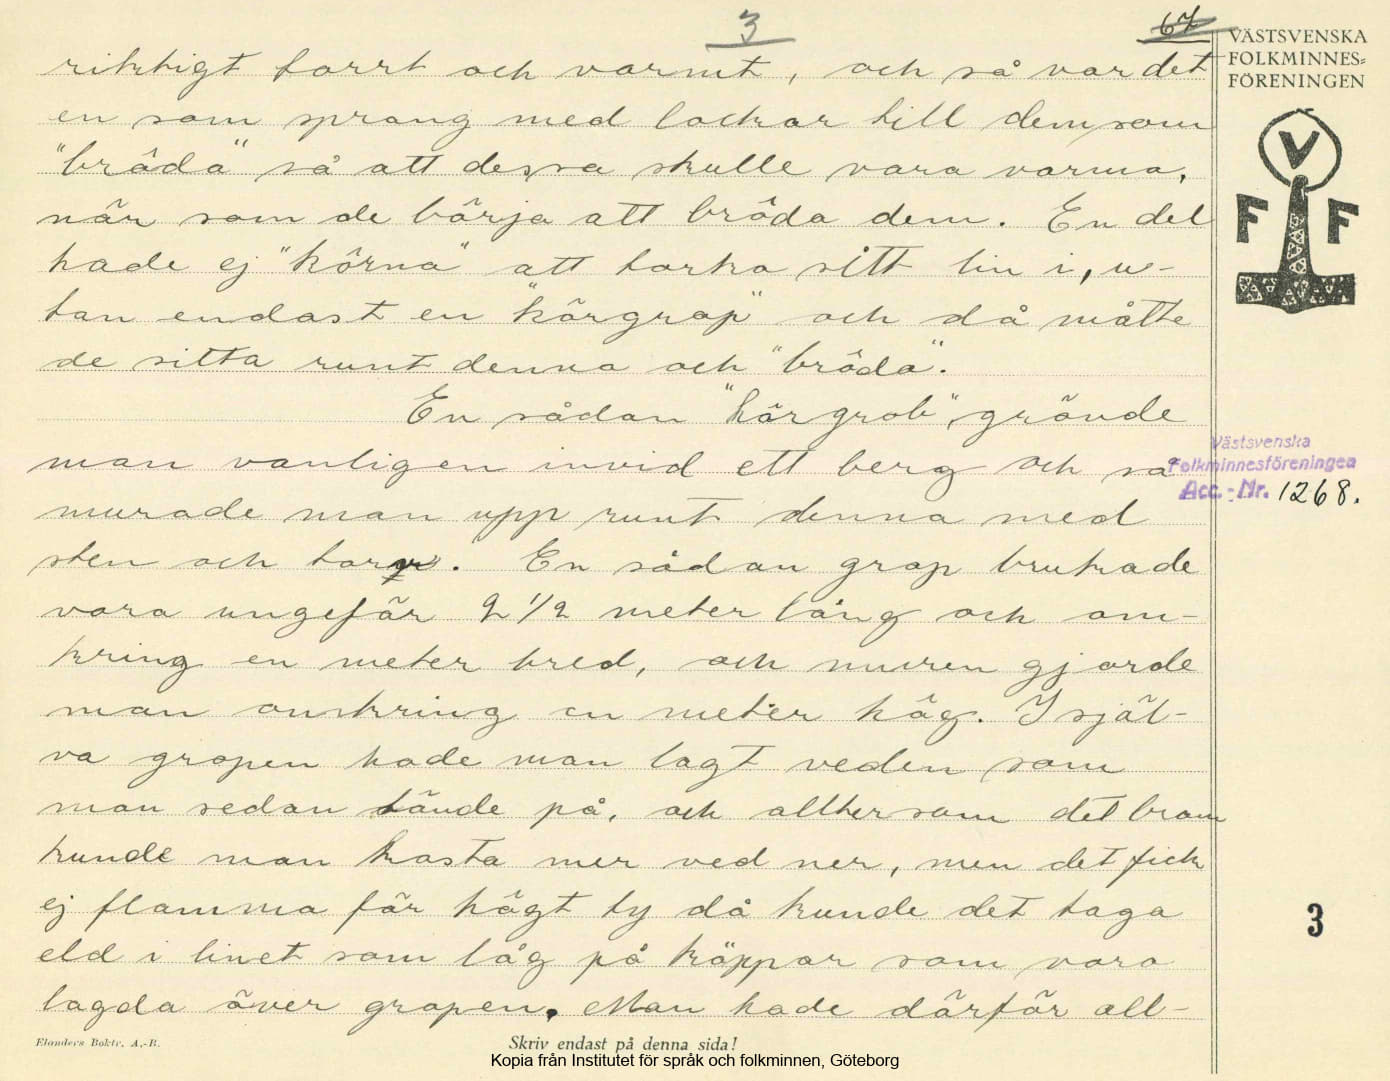 3
67
VÄSTSVENSKA
FOLKMINNES=
FÖRENINGEN
V
F F
riktigt torrt och varmt, och så var det
en som sprang med lockar till dem som
"bråda" så att dessa skulle vara varma,
när som de börja att bråda dem. En del
hade ej "körna" att torka sitt lin i, u-
tan endast en "körgrop" och då måtte
de sitta runt denna och "bråda".
En sådan "körgrob", grävde
man vanligen invid ett berg och så
murade man upp runt denna med
sten och torv. En sådan grop brukade
vara ungefär 2 1/2 meter lång och om-
kring en meter bred, och muren gjorde
man omkring en meter hög. I själ-
va gropen hade man lagt veden som
man sedan tände på, och allter som det brann
kunde man kasta mer ved ner, men det fick
ej flamma för högt ty då kunde det taga
eld i linet som låg på käppar som voro
lagda över gropen. Man hade därför all-
Västsvenska
Folkminnesföreningen
Acc.-Nr. 1268.
3
Elanders Boktr. A.-B.
Skriv endast på denna sida!
Kopia från Institutet för språk och folkminnen, Göteborg